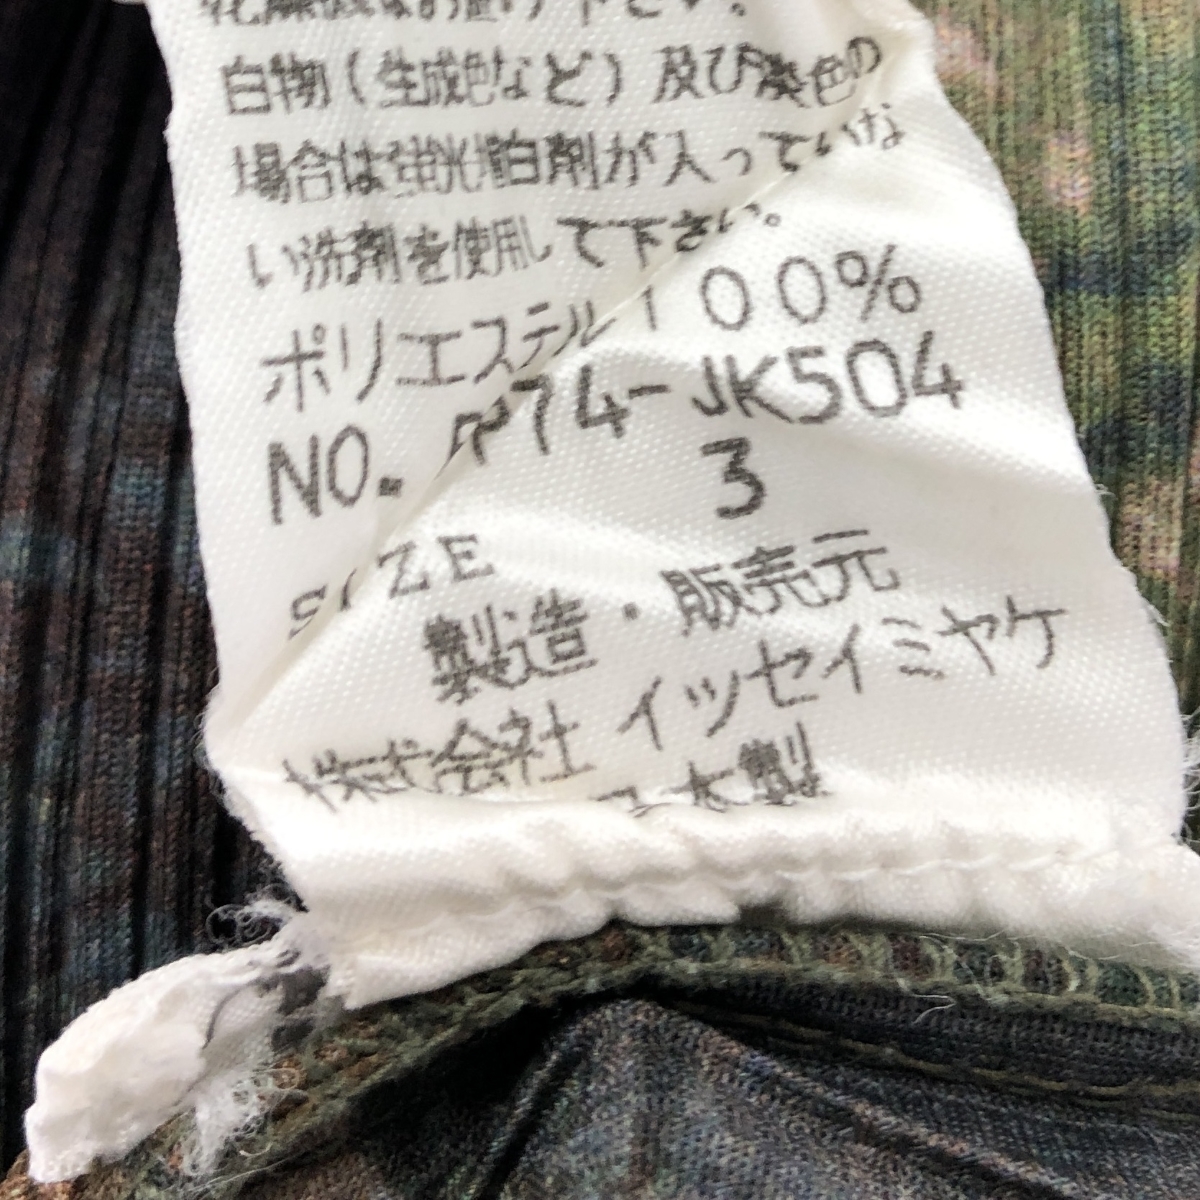 下さい。
白物(生成色など)及び淡色の
場合は蛍光増白剤が入っていな
い洗剤を使用して下さい。
ポリエステル100%
NO. PP74-JK504
3
SIZE
製造・販売元
株式会社イッセイミヤケ
日本製